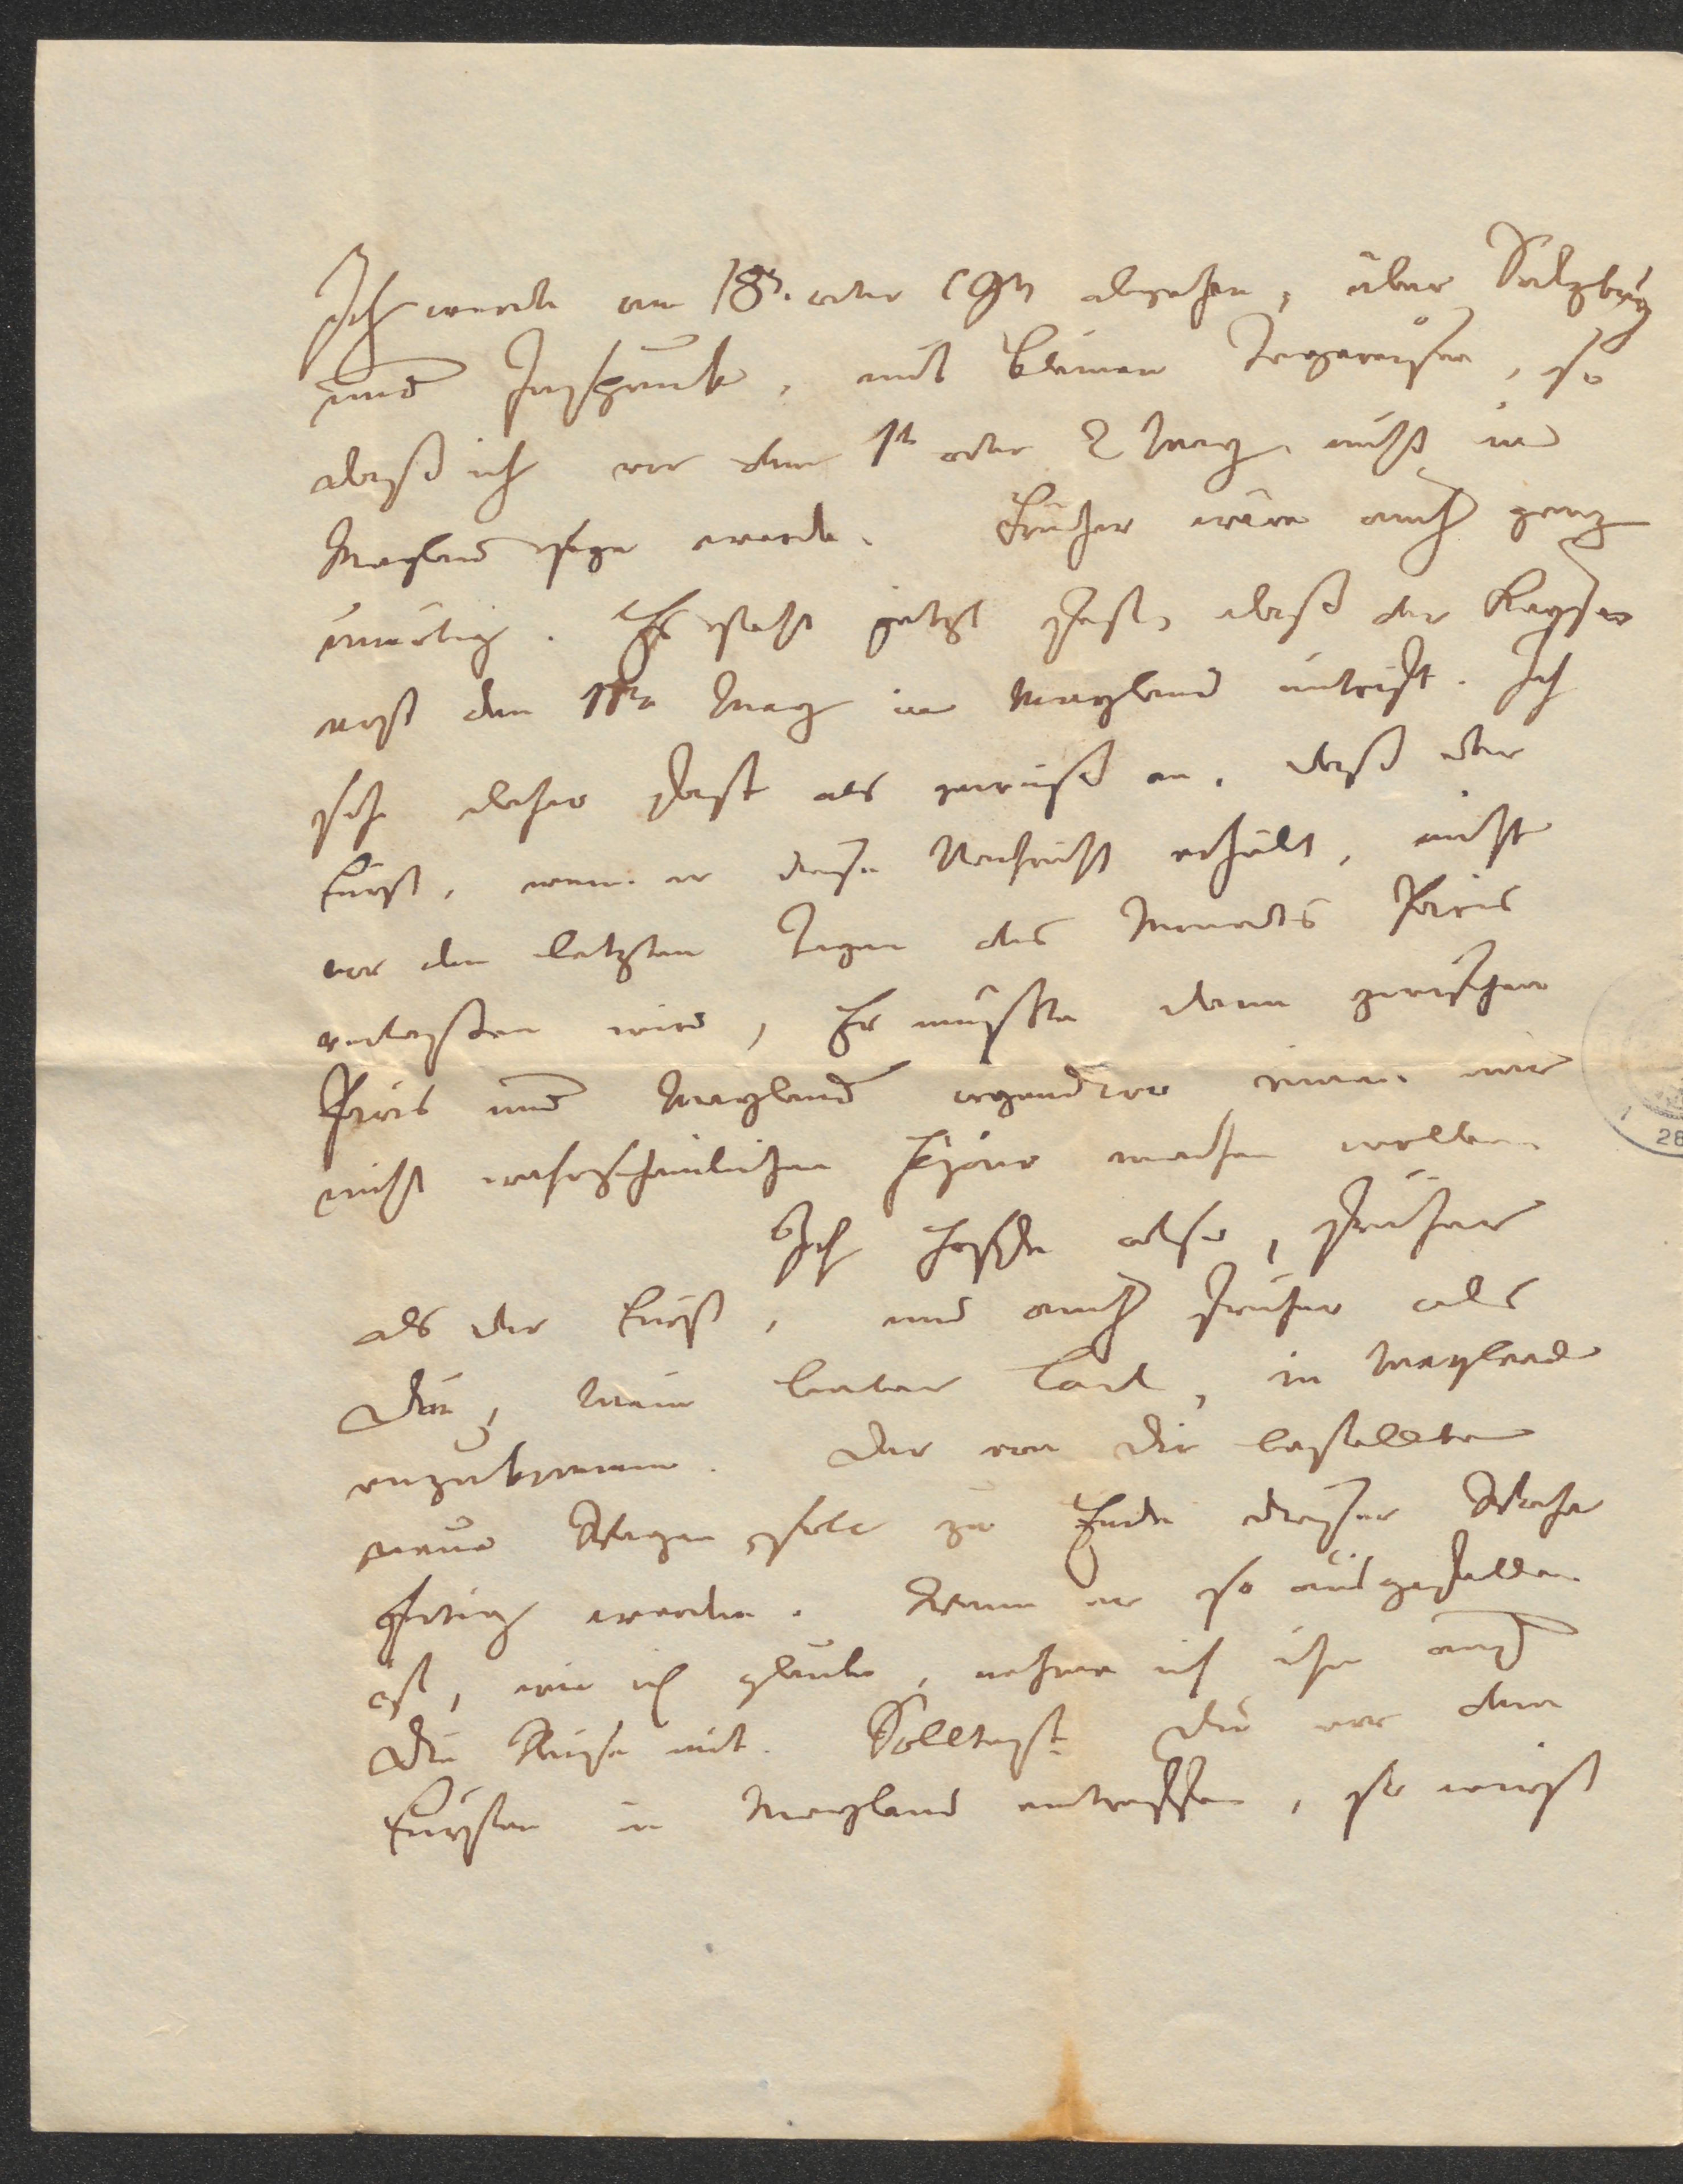 Ich werde am 18t. oder 19tn abgehen, über Salzburg
und Inspruck, mit kleinen Tagereisen, so
daß ich vor dem 1t oder 2 May nicht in
Mayland seyn werde. Früher wäre auch ganz
unnötig. Es steht jetzt fest, daß der Kayser
erst den 11ten May in Mayland eintrift. Ich
sehe daher fast als gewiß an, daß der
Fürst, wenn er diese Nachricht erhält, nicht
vor den letzten Tagen des Monats Paris
verlaßen wird, Er müßte denn zwischen
Paris und Mayland irgendwo einen mir
nicht wahrscheinlichen Sejour machen wollen.
Ich hoffe also, früher
als der Fürst, und auch früher als
Du, mein lieber Carl, in Mayland
anzukommen. Der von Dir bestellte
neue Wagen soll zu Ende dieser Woche
fertig werden. Wenn er so ausgefallen
ist, wie ich glaube, nehme ich ihn auf
die Reise mit. Solltest Du vor dem
Fürsten in Mayland eintreffen, so wirst
28